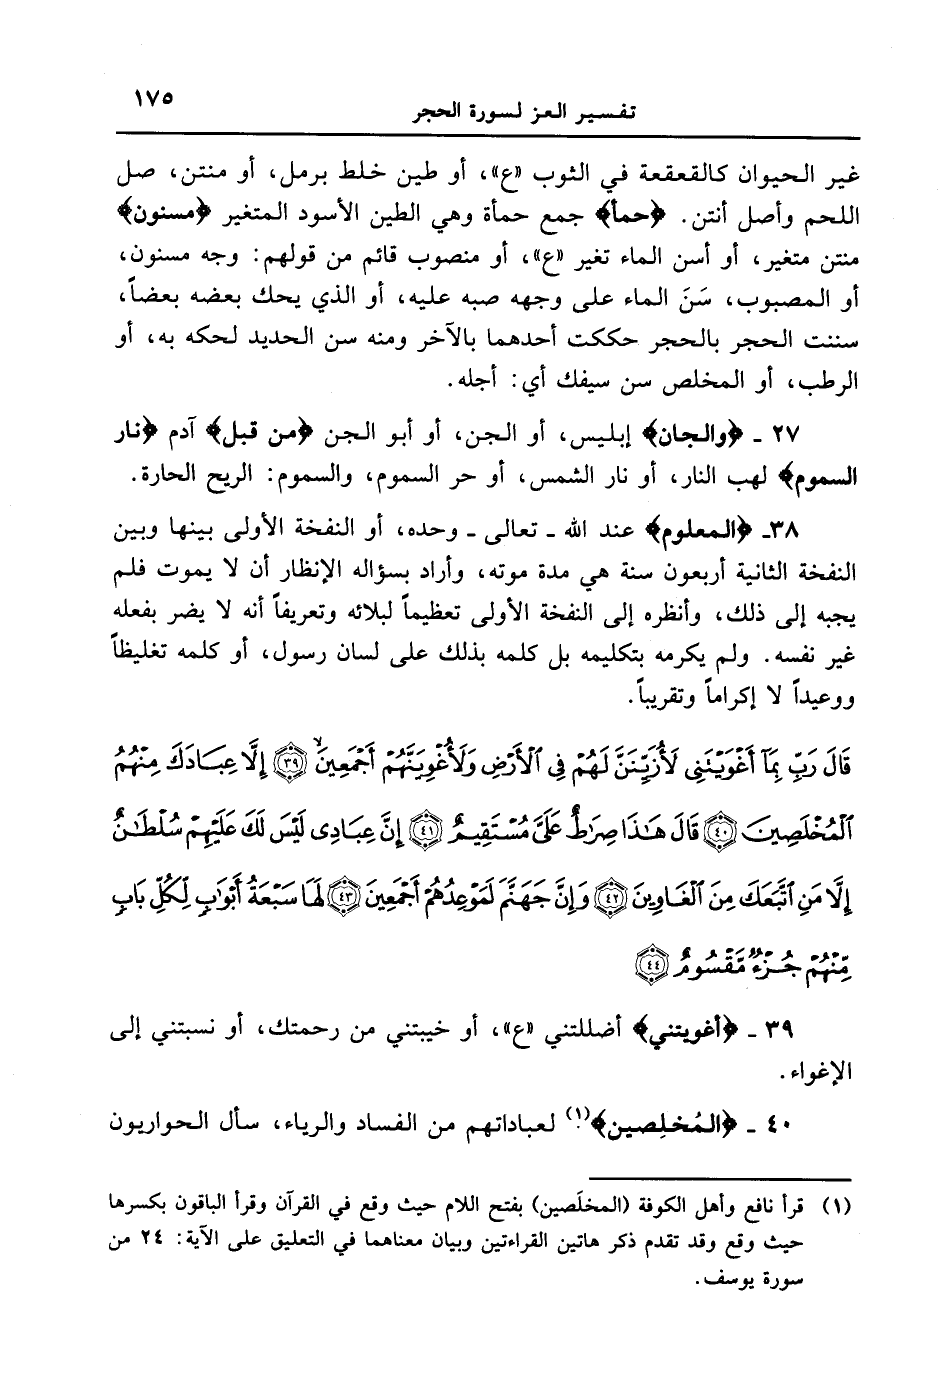 ١٧٥
تفسير العز لسورة الحجر
غير الحيوان كالقعقعة في الثوب «ع»، أو طين خلط برمل، أو منتن، صل
اللحم وأصل أنتن. ﴿حمأ﴾ جمع حمأة وهي الطين الأسود المتغير ﴿مسنون﴾
منتن متغير، أو أسن الماء تغير «ع»، أو منصوب قائم من قولهم: وجه مسنون،
أو المصبوب، سَنَ الماء على وجهه صبه عليه، أو الذي يحك بعضه بعضاً،
سننت الحجر بالحجر حككت أحدهما بالآخر ومنه سن الحديد لحكه به، أو
الرطب، أو المخلص سن سيفك أي: أجله.
٢٧ ـ ﴿والجان﴾ إبليس، أو الجن، أو أبو الجن ﴿من قبل﴾ آدم ﴿نار
السموم﴾ لهب النار، أو نار الشمس، أو حر السموم، والسموم: الريح الحارة.
٣٨ـ ﴿المعلوم﴾ عند الله ـ تعالى ـ وحده، أو النفخة الأولى بينها وبين
النفخة الثانية أربعون سنة هي مدة موته، وأراد بسؤاله الإنظار أن لا يموت فلم
يجبه إلى ذلك، وأنظره إلى النفخة الأولى تعظيماً لبلائه وتعريفاً أنه لا يضر بفعله
غير نفسه. ولم يكرمه بتكليمه بل كلمه بذلك على لسان رسول، أو كلمه تغليظاً
ووعيداً لا إكراماً وتقريباً.
قَالَ رَبِّ بِمَآ أَغْوَيْتَنِى لَأُزَيِّنَنَّ لَهُمْ فِى ٱلْأَرْضِ وَلَأُغْوِيَنَّهُمْ أَجْمَعِينَ ۙ ٣٩ إِلَّا عِبَادَكَ مِنْهُمُ
ٱلْمُخْلَصِينَ ٤٠ قَالَ هَـٰذَا صِرَٰطٌ عَلَىَّ مُسْتَقِيمٌ ٤١ إِنَّ عِبَادِى لَيْسَ لَكَ عَلَيْهِمْ سُلْطَـٰنٌ
إِلَّا مَنِ ٱتَّبَعَكَ مِنَ ٱلْغَاوِينَ ٤٢ وَإِنَّ جَهَنَّمَ لَمَوْعِدُهُمْ أَجْمَعِينَ ٤٣ لَهَا سَبْعَةُ أَبْوَٰبٍ لِّكُلِّ بَابٍ
مِّنْهُمْ جُزْءٌ مَّقْسُومٌ ٤٤
٣٩ ـ ﴿أغويتني﴾ أضللتني «ع»، أو خيبتني من رحمتك، أو نسبتني إلى
الإغواء.
٤٠ ـ ﴿المُخلِصين﴾(١) لعباداتهم من الفساد والرياء، سأل الحواريون
(١) قرأ نافع وأهل الكوفة (المخلَصين) بفتح اللام حيث وقع في القرآن وقرأ الباقون بكسرها
حيث وقع وقد تقدم ذكر هاتين القراءتين وبيان معناهما في التعليق على الآية: ٢٤ من
سورة يوسف.